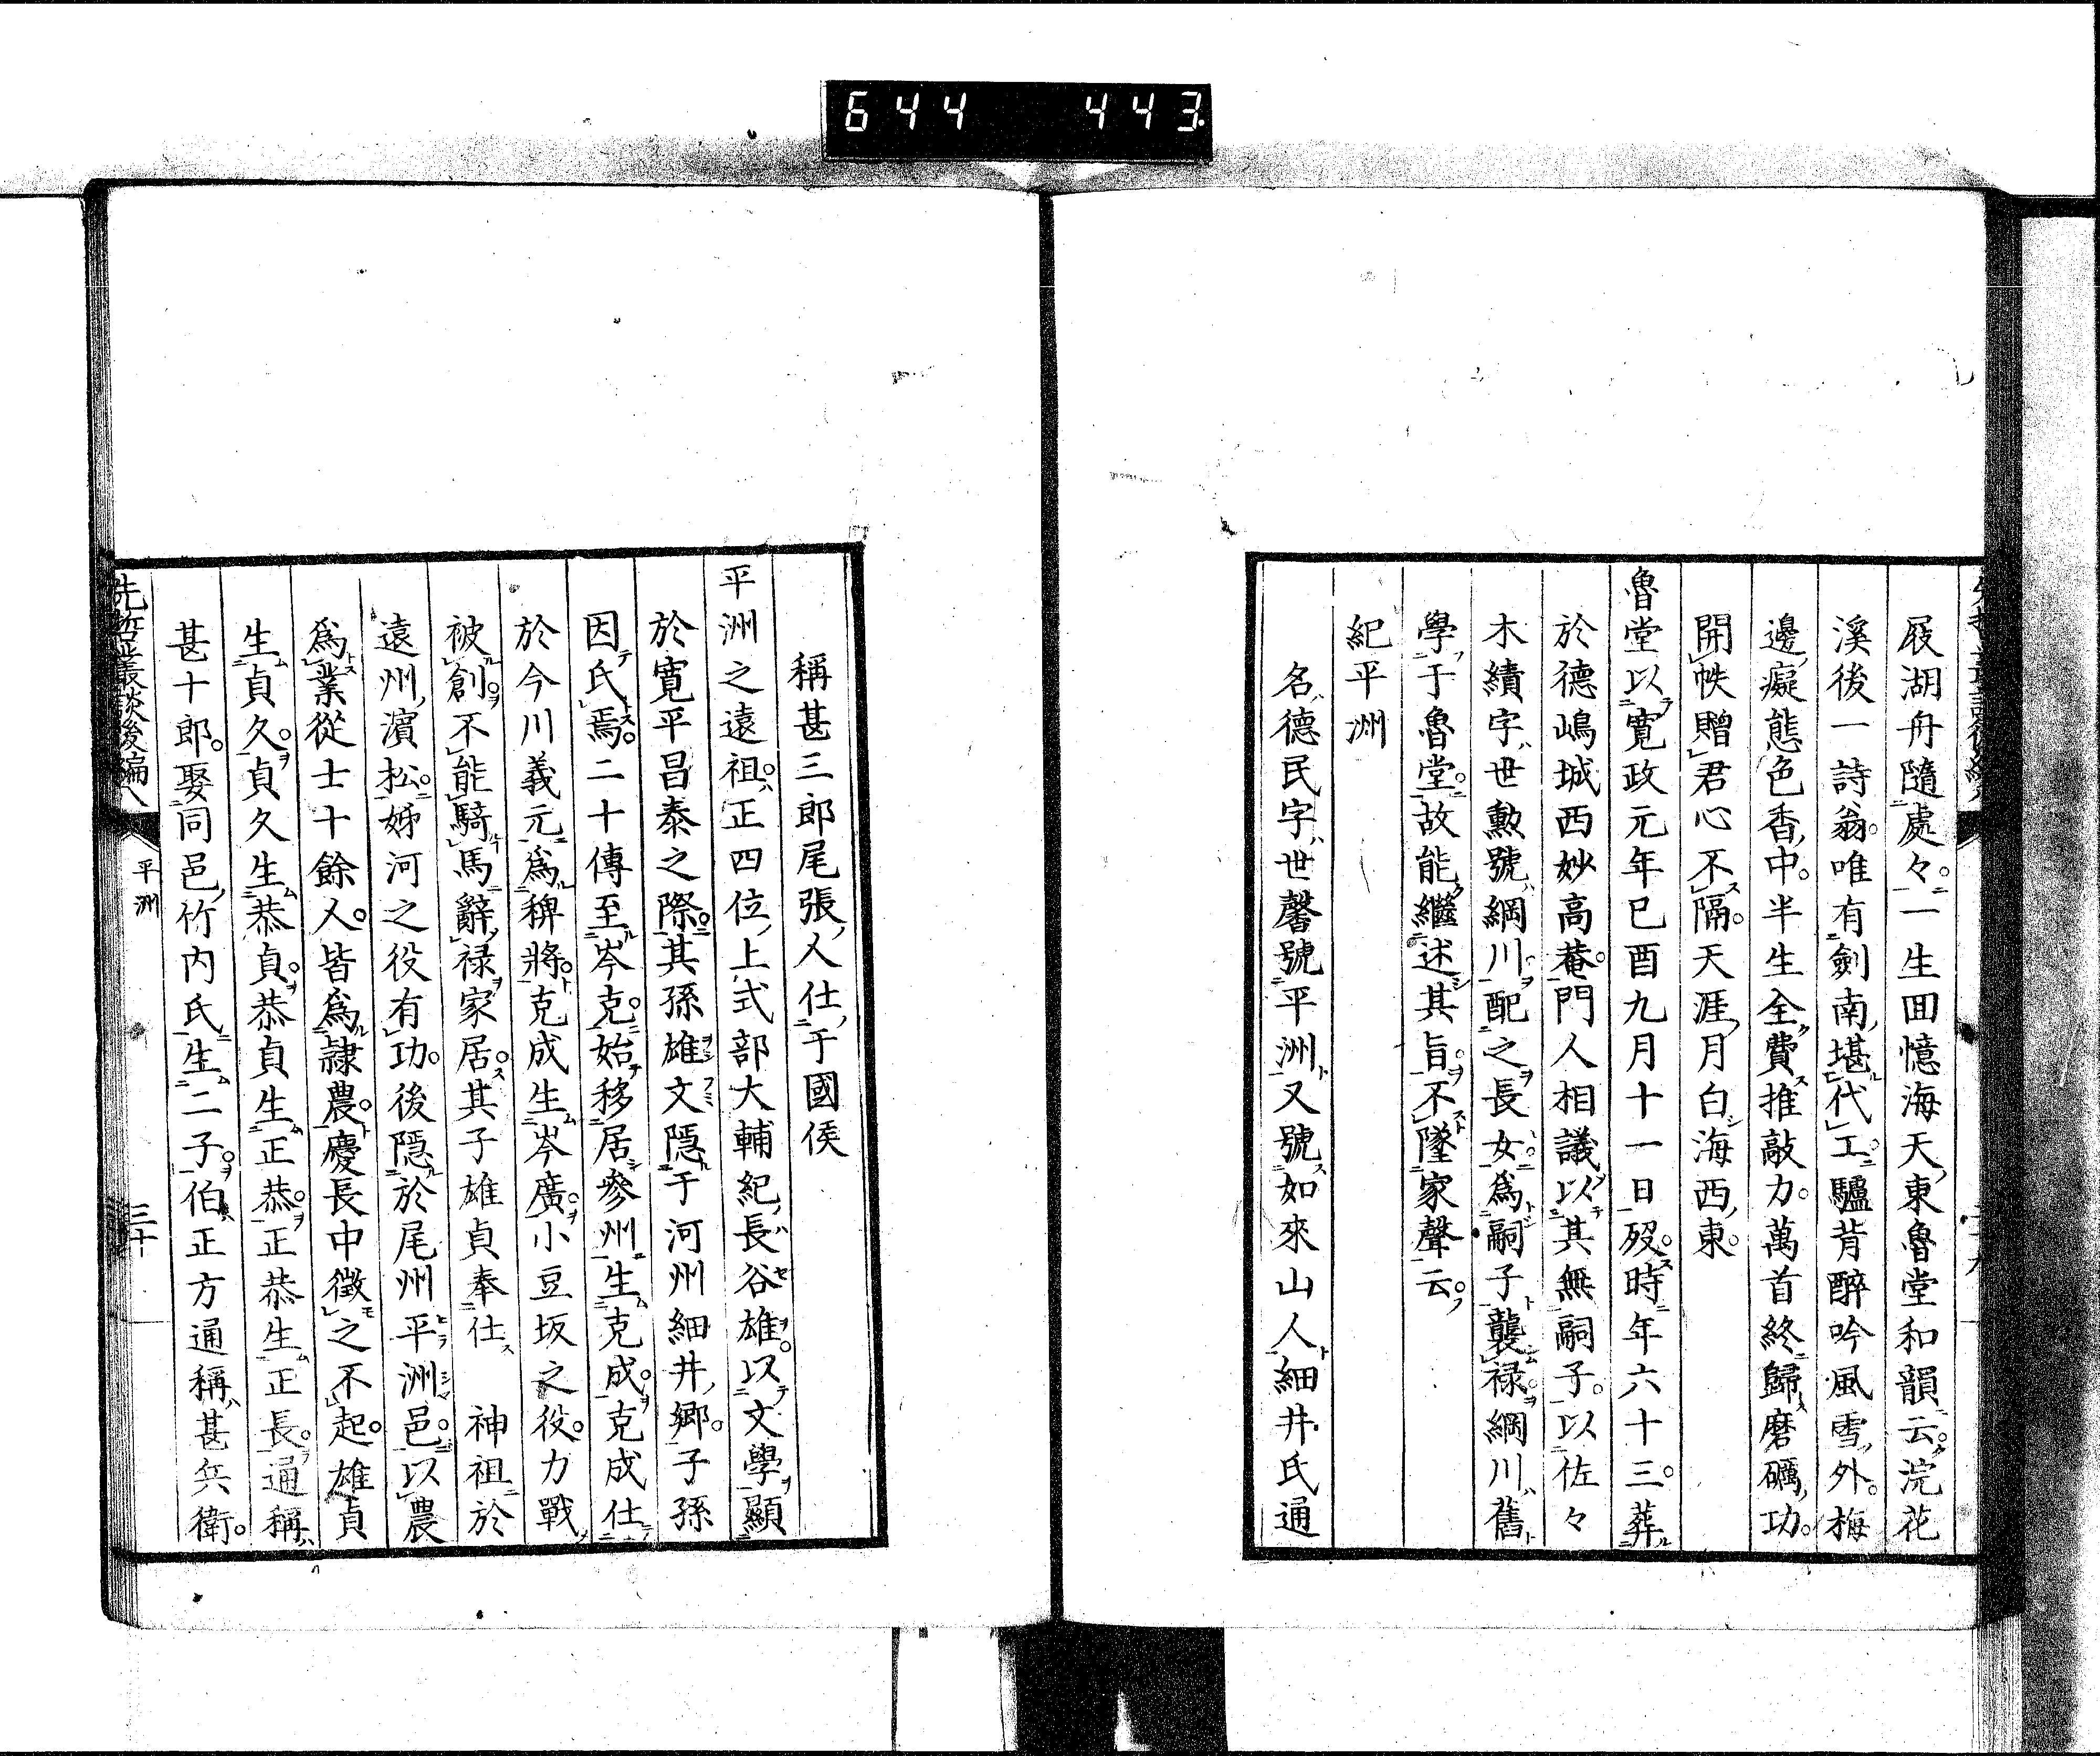 644 443
屐湖舟隨處々一生囬憶海天東魯堂和韻云浣花
溪後一詩翁唯有劍南堪代工驢背醉吟風雪外梅
邊癡態色香中半生全費推敲力萬首終歸磨礪功
開帙贈君心不隔天涯月白海西東
魯堂以寬政元年巳酉九月十一日歿時年六十三葬
於德嶋城西妙高菴門人相議以其無嗣子以佐々
木績字世勲號綱川配之長女爲嗣子襲禄綱川舊
學于魯堂故能繼述其旨不墜家聲云
紀平洲
名德民字世馨號平洲又號如來山人細井氏通
稱甚三郎尾張人仕于國侯
平洲之遠祖正四位上式部大輔紀長谷雄以文學顯
於寬平昌泰之際其孫雄文隱于河州細井鄉子孫
因氏焉二十傳至岑克始移居參州生克成克成仕
於今川義元爲稗將克成生岑廣小豆坂之役力戰
被創不能騎馬辭禄家居其子雄貞奉仕 神祖於
遠州濱松姊河之役有功後隱於尾州平洲邑以農
爲業從士十餘人皆爲隷農慶長中徵之不起雄貞
生貞久貞久生恭貞恭貞生正恭正恭生正長通稱
甚十郎娶同邑竹内氏生二子伯正方通稱甚兵衛
先哲叢談後編八
平洲
三十